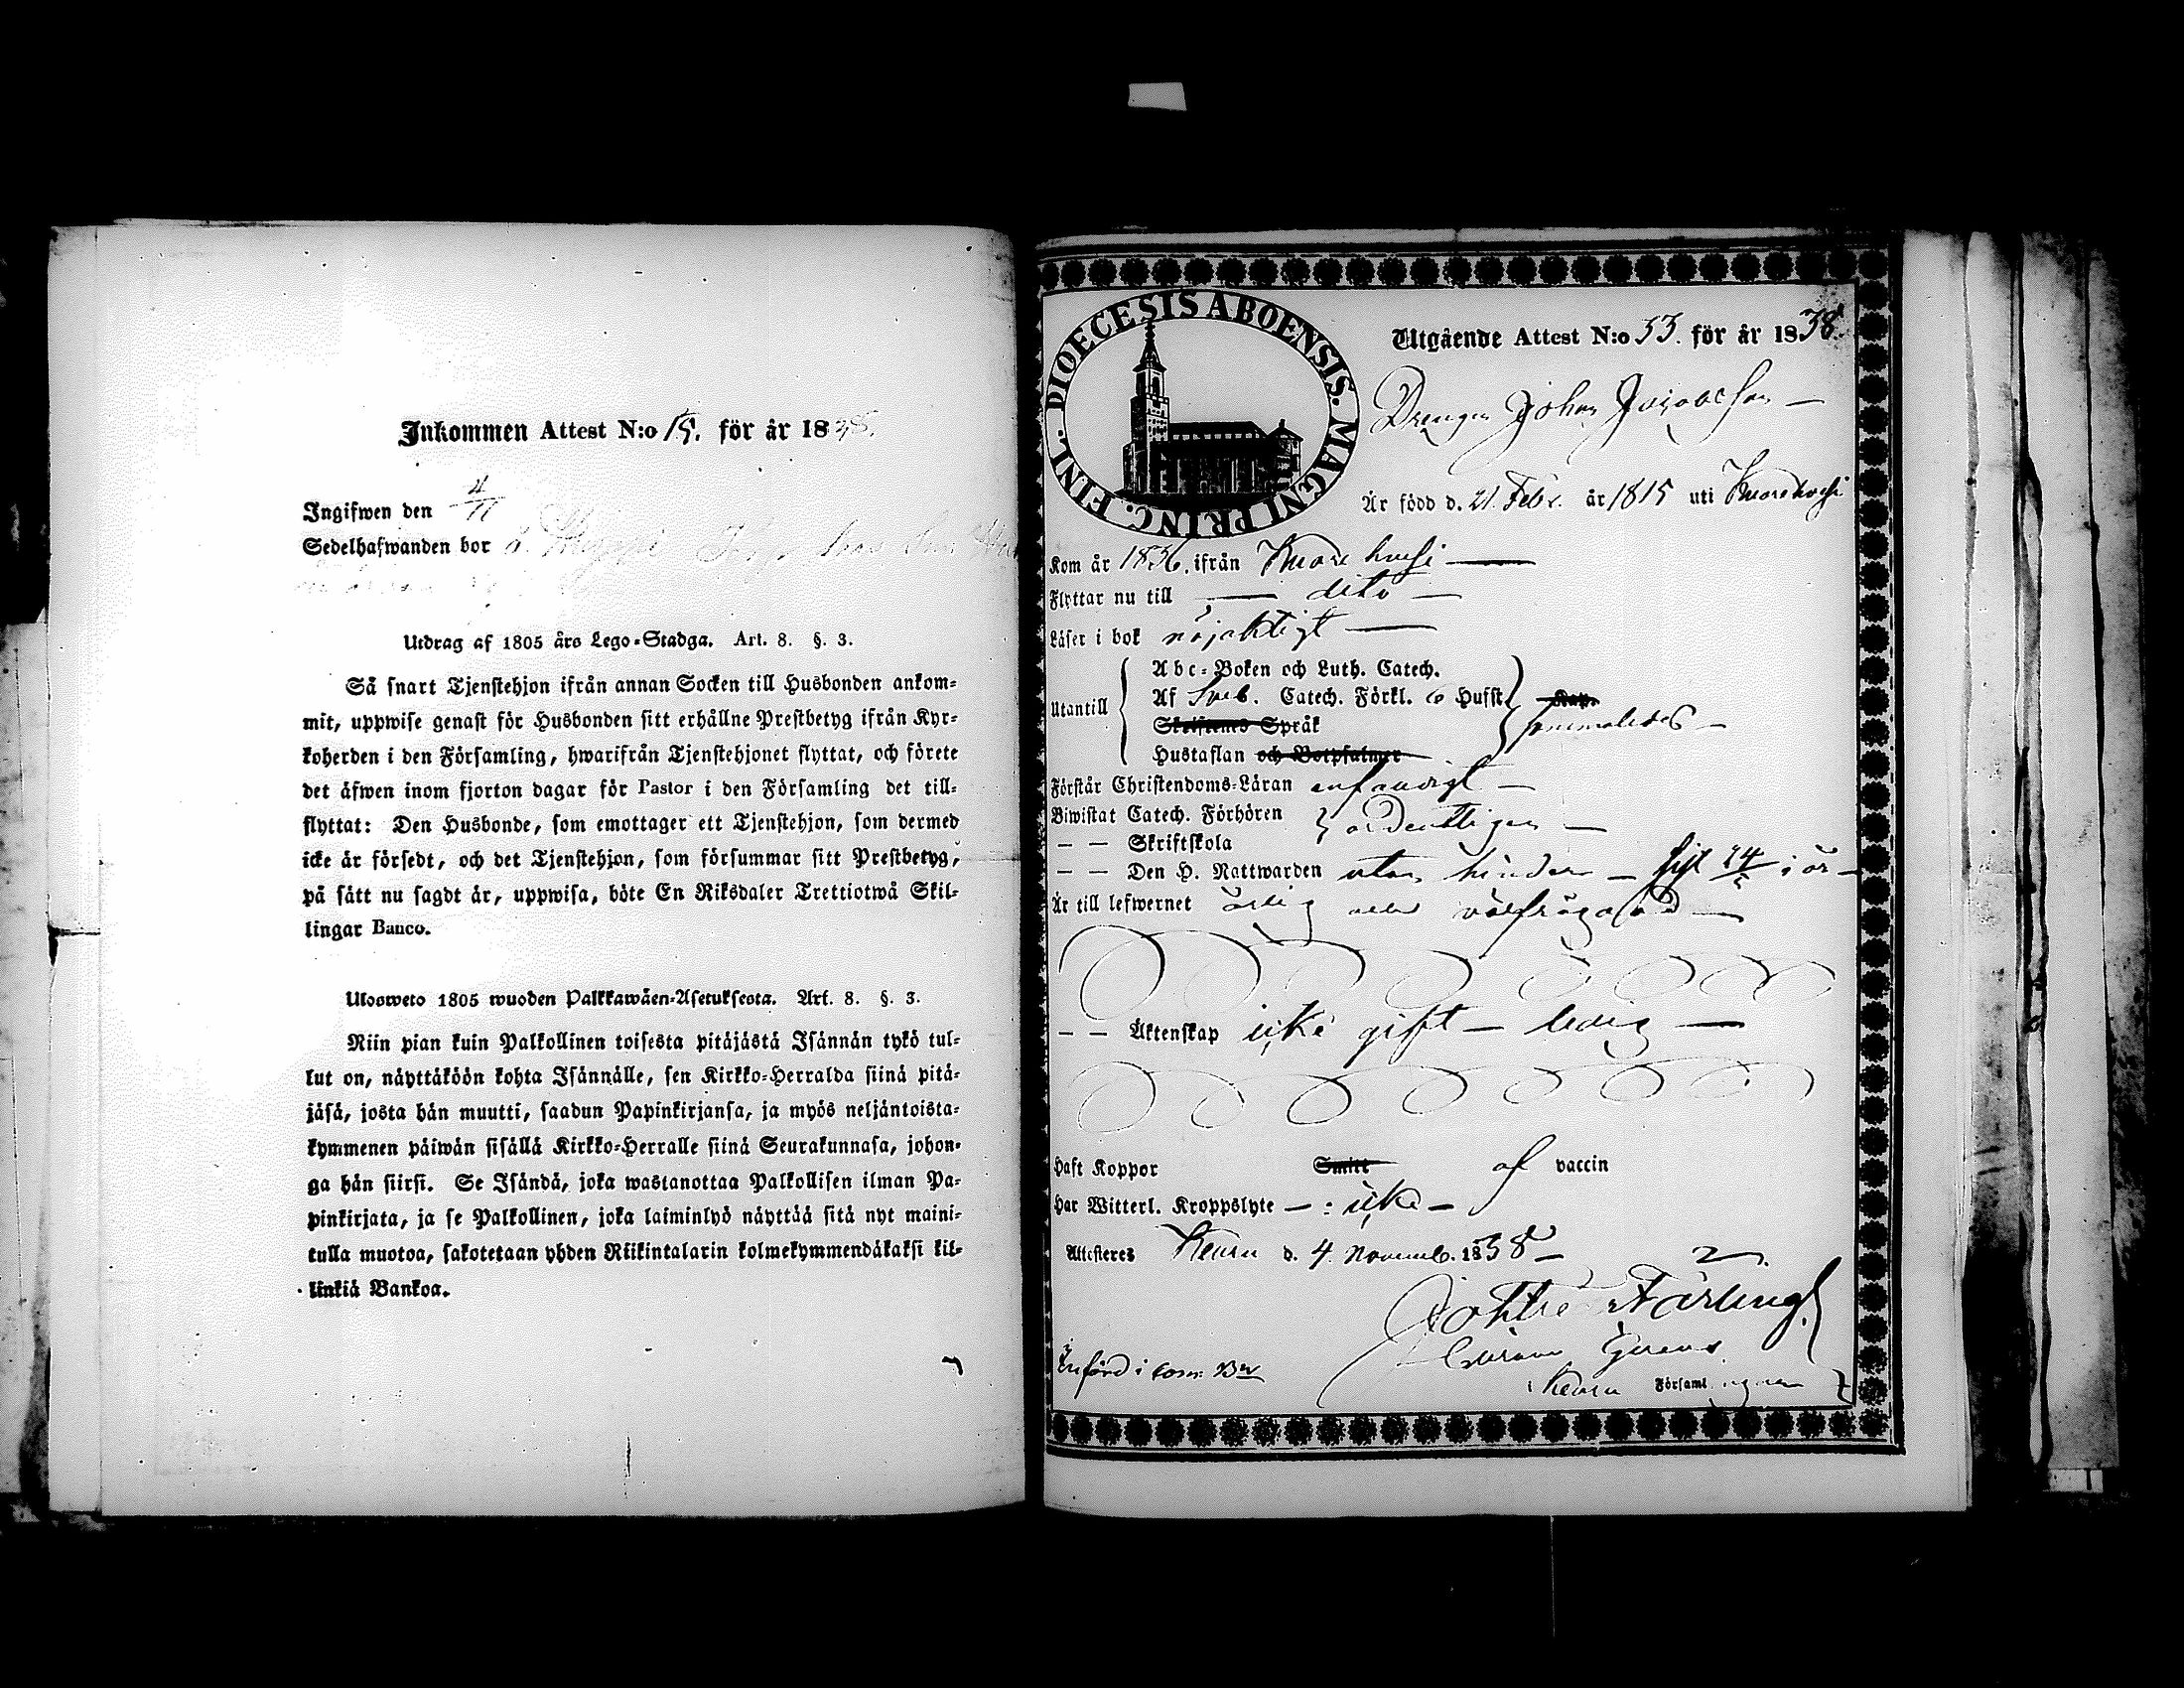 Inkommen Attest N:o 15. för år 1838.
Ingifwen den 4/11
Sedelhafwanden bor
Utdrag af 1805 års Lego-Stadga. Art. 8. §. 3.
Så snart Tjenstehjon ifrån annan Socken till Husbonden ankom-
mit, uppwise genast för Husbonden sitt erhållne Prestbetyg ifrån Kyr-
koherden i den Församling, hwarifrån Tjenstehjonet flyttat, och förete
det äfwen inom fjorton dagar för Pastor i den Församling det till-
flyttat: Den Husbonde, som emottager ett Tjenstehjon, som dermed
icke är försedt, och det Tjenstehjon, som försummar sitt Prestbetyg,
på sätt nu sagdt är, uppwisa, böte En Riksdaler Trettiotwå Skil-
lingar Banco.
Ulosweto 1805 wuoden Palkkawäen-Asetuksesta. Art. 8. §. 3.
Niin pian kuin Palkollinen toisesta pitäjästä Isännän tykö tul-
lut on, näyttäköön kohta Isännälle, sen Kirkko-Herralda siinä pitä-
jäsä, josta hän muutti, saadun Papinkirjansa, ja myös neljäntoista-
kymmenen päiwän sisällä Kirkko-Herralle siinä Seurakunnasa, johon-
ga hän siirsi. Se Isändä, joka wastanottaa Palkollisen ilman Pa-
pinkirjata, ja se Palkollinen, joka laiminlyö näyttää sitä nyt maini-
tulla muotoa, sakotetaan yhden Riikintalarin kolmekymmendäkaksi kil-
linkiä Bankoa.
DIOECESIS ABOENSIS. MAGNI PRINC. FINL.
Utgående Attest N:o 53. för år 1838.
Drengen Johan Jacobsson
Är född d. 21 Febr. år 1815 uti Kuorehvesi
Kom år 1836. ifrån Kuorehvesi
Flyttar nu till dito
Läser i bok nöjaktigt
Utantill
Abc-Boken och Luth. Catech.
Af Sveb. Catech. Förkl. 6 Hufst.
Skriftenes Språk
Hustaflan och Botpsalmer
Kap.
sammaledes
Förstår Christendoms-Läran enfaldigt
Biwistat Catech. Förhören
ordentligen
— — Skriftskola
— — Den H. Nattwarden utan hinder — sist 14/5 i år
Är till lefwernet ärlig och välfrägdad
— — Äktenskap icke gift — ledig
Haft Koppor Smitt af vaccin
Har Witterl. Kroppslyte — : icke —
Attesteras Keuru d. 4 Novemb. 1838
Färling
Keuru Församl
Införd i com. B